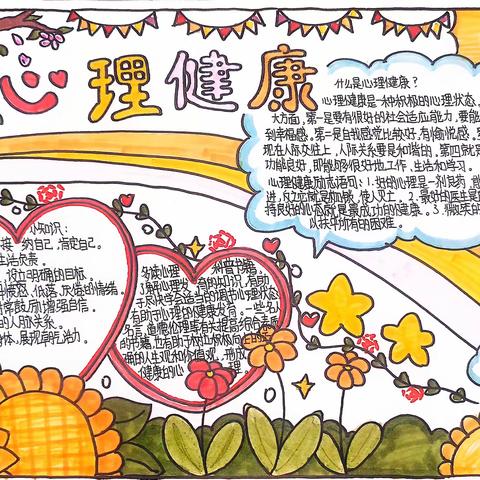 心理健康
什么是心理健康？
心理健康是一种积极的心理状态，
大方面，第一是要有很好的社会适应能力，要能
到幸福感。第二是自我感觉比较好，有愉悦感。
现在人际交往上，人际关系要是和谐的。第四就是
功能良好，即能够很好地工作、生活和学习。
心理健康励志语句：1.好的心理是一剂良药，
进，对立就是加够，使人灭亡。2.最好的医生是
持良好的心态就是最成功的健康。3.微笑
以抚平所有的困难。
小知识：
接纳自己，肯定自己。
生活负责。
设立明确的目标。
疲惫、低落、灰暗的情绪。
常鼓励，增强自信。
的人际关系。
体，展现蓬勃活力。
多读心理科普书籍，
了解心理发育的知识，有助
于尽快学会适合的调节心理状态
有助于心理的健康发育。一些名人
名言、道德伦理等有关提高综合素质
的书籍，也有助于树立积极向上的
确的人生观和价值观，形成
健康的心理。